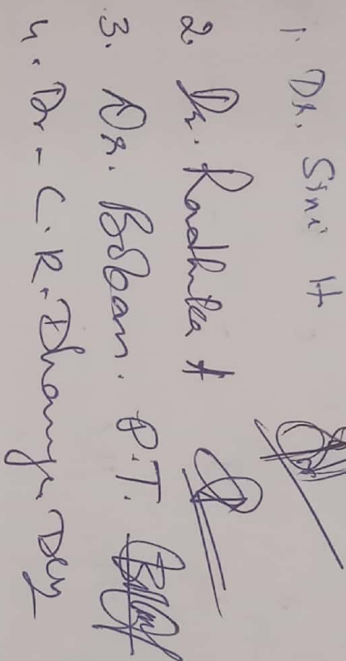 1. Dr. Sini H
2. Dr. Radhika A
3. Dr. Boban. P.T.
4. Dr. C.R. Dhanya